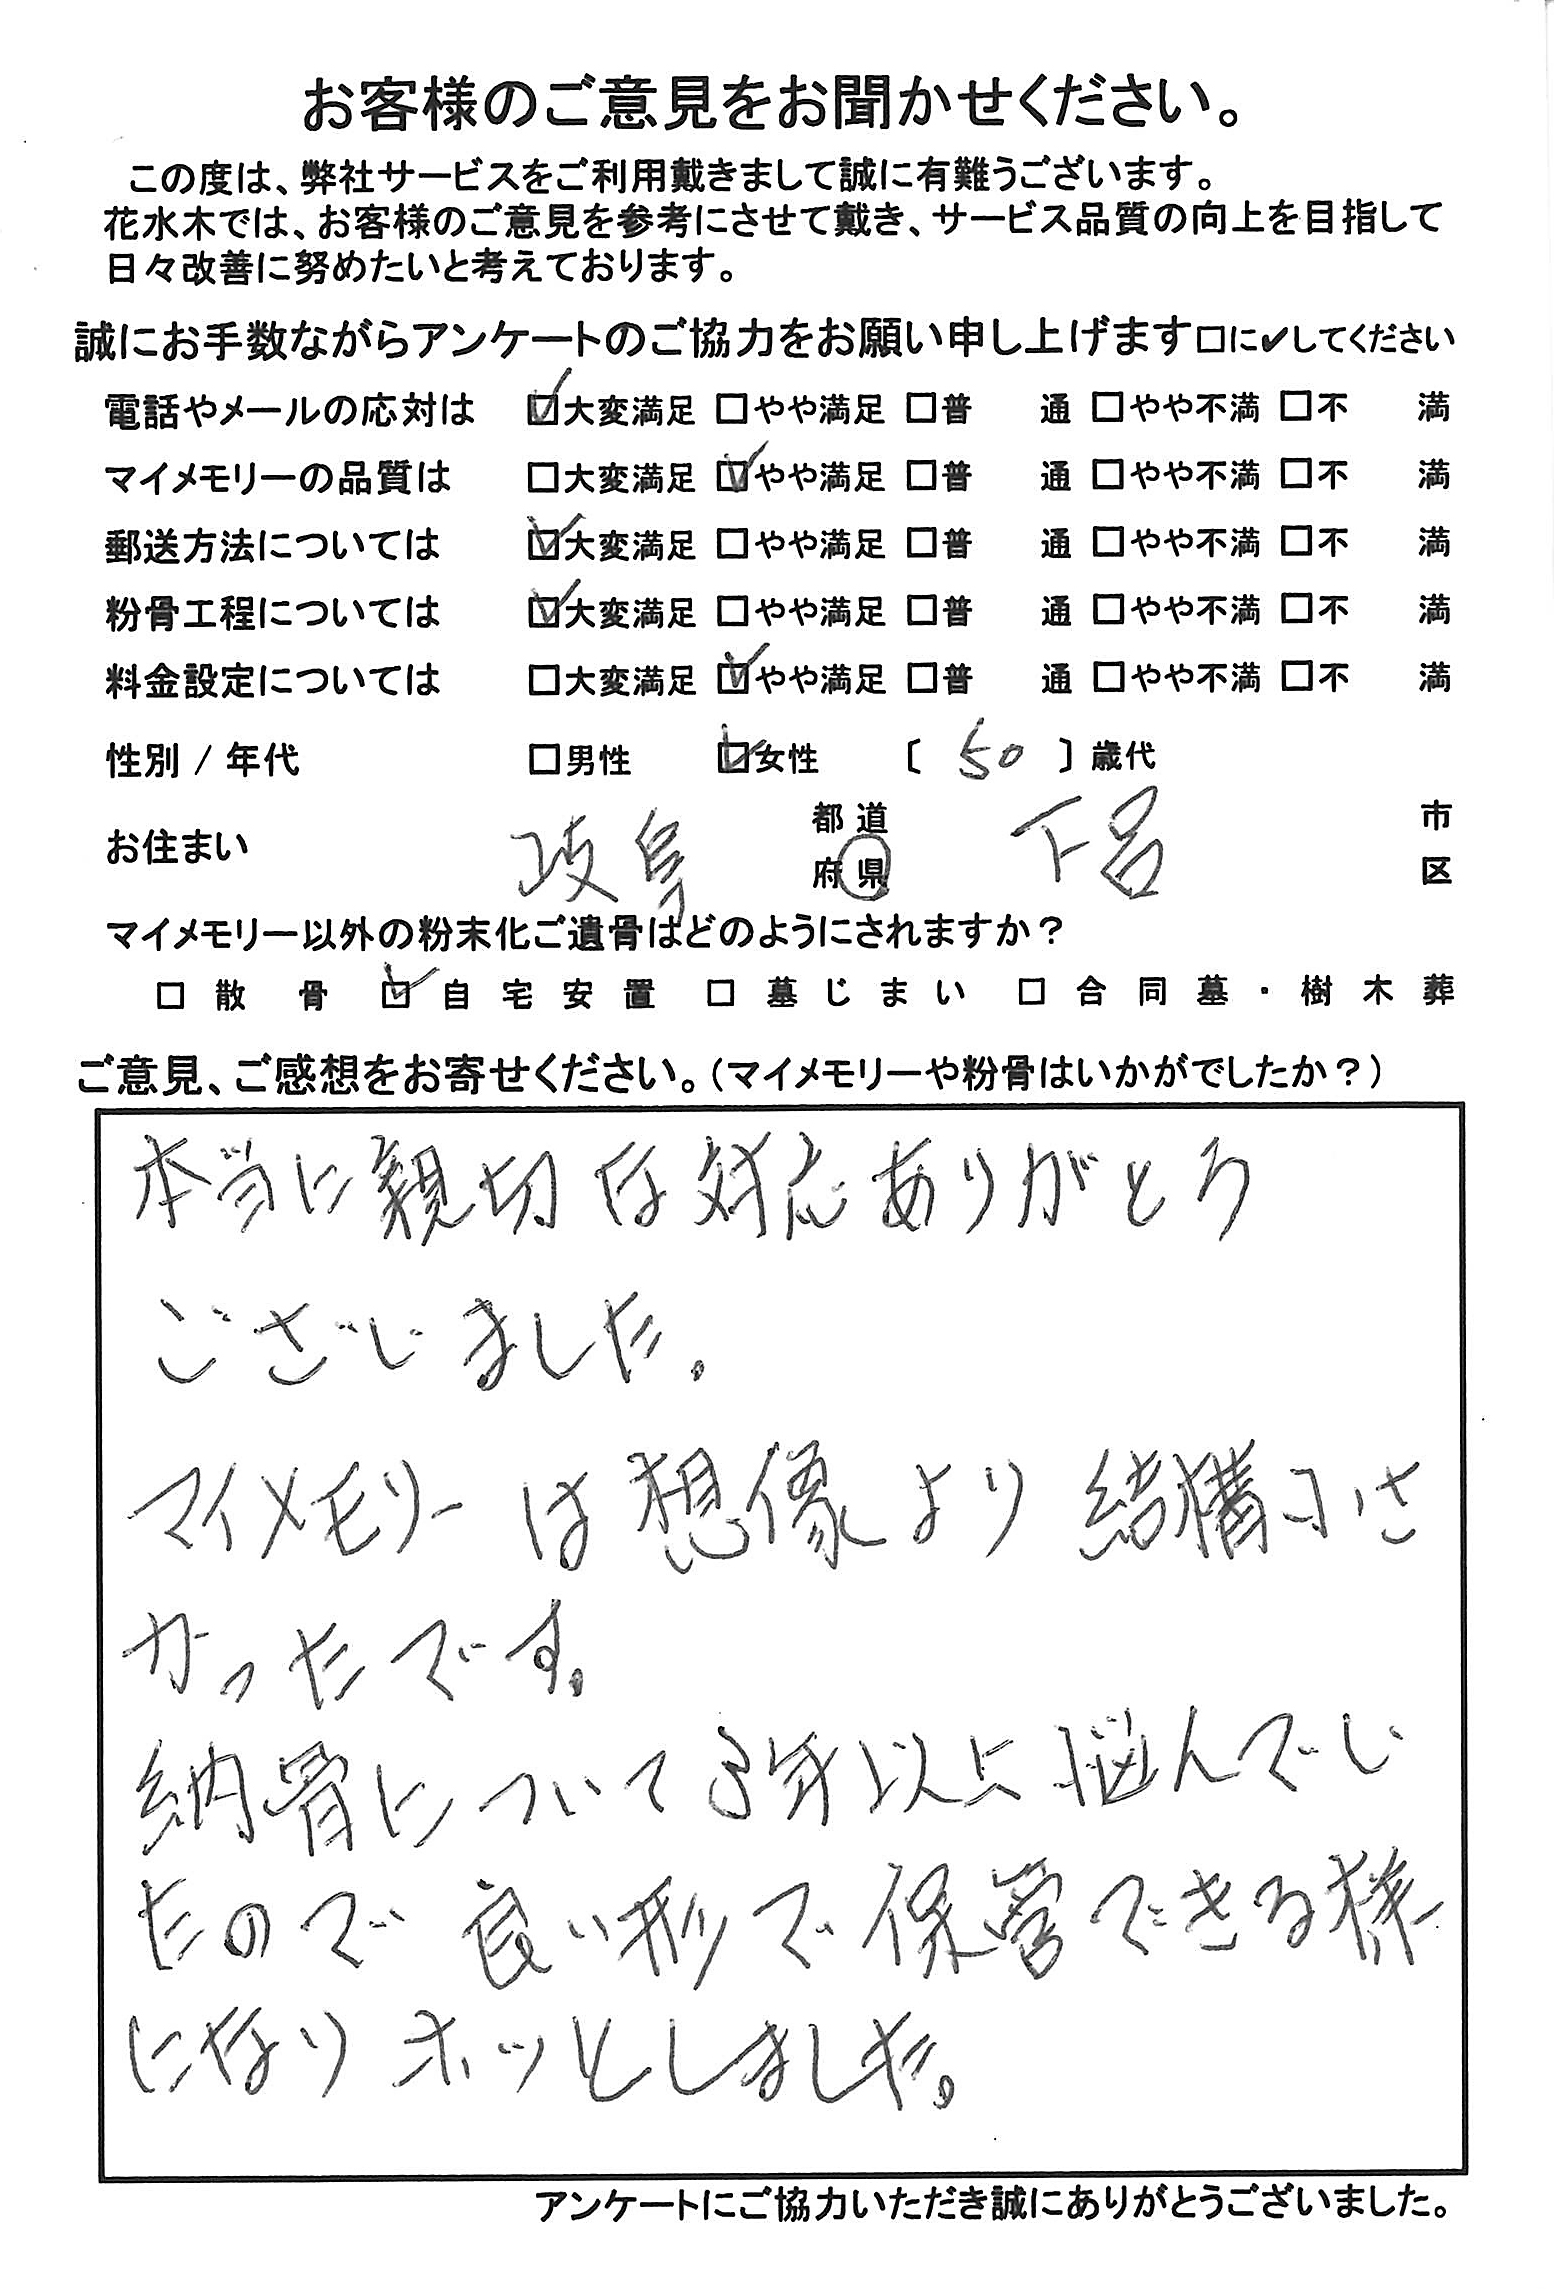 お客様のご意見をお聞かせください。
この度は、弊社サービスをご利用戴きまして誠に有難うございます。
花水木では、お客様のご意見を参考にさせて戴き、サービス品質の向上を目指して
日々改善に努めたいと考えております。
誠にお手数ながらアンケートのご協力をお願い申し上げます□に✓してください
電話やメールの応対は ☑大変満足 □やや満足 □普　通 □やや不満 □不　満
マイメモリーの品質は □大変満足 ☑やや満足 □普　通 □やや不満 □不　満
郵送方法については ☑大変満足 □やや満足 □普　通 □やや不満 □不　満
粉骨工程については ☑大変満足 □やや満足 □普　通 □やや不満 □不　満
料金設定については □大変満足 ☑やや満足 □普　通 □やや不満 □不　満
性別 / 年代 □男性 ☑女性 〔 50 〕歳代
お住まい 岐阜 都道府県 下呂 市区
マイメモリー以外の粉末化ご遺骨はどのようにされますか？
□散骨 ☑自宅安置 □墓じまい □合同墓・樹木葬
ご意見、ご感想をお寄せください。（マイメモリーや粉骨はいかがでしたか？）
本当に親切な対応ありがとう
ございました。
マイメモリーは想像より結構小さ
かったです。
納骨について3年以上悩んでい
たので良い形で保管できる様
になりホッとしました。
アンケートにご協力いただき誠にありがとうございました。